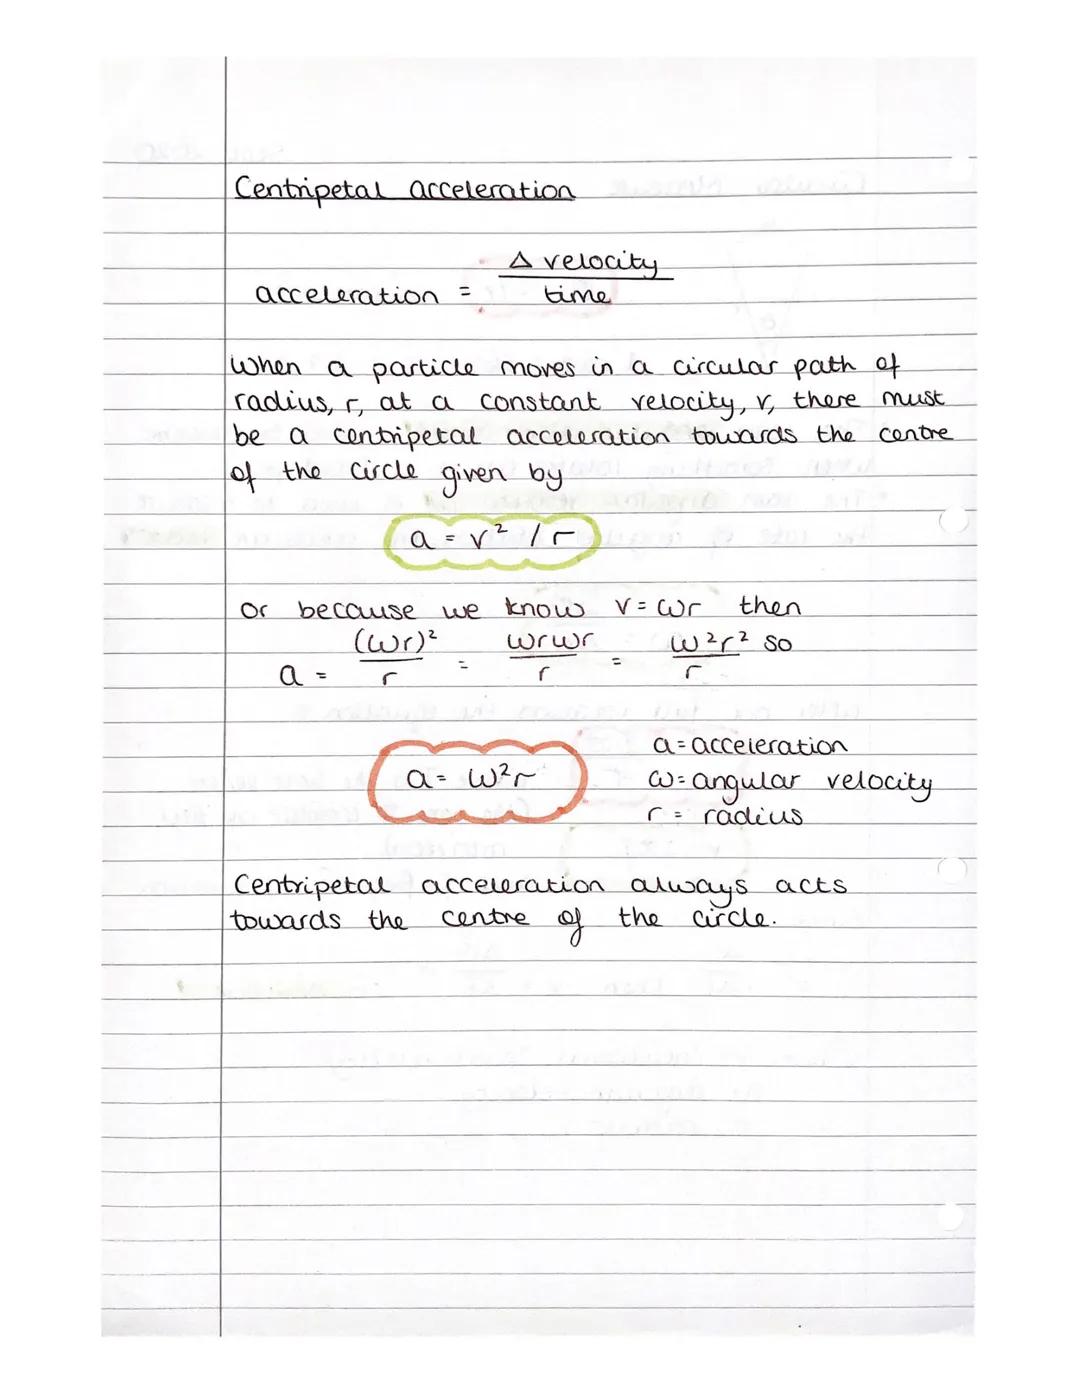 Centripetal acceleration
acceleration = Δ velocity / time
When a particle moves in a circular path of
radius, r, at a constant velocity, v, there must
be a centripetal acceleration towards the centre
of the circle given by
a = v² / r
Or because we know v = ωr then
a = (ωr)² / r = ωrωr / r = ω²r² / r so
a = ω²r
a = acceleration
ω = angular velocity
r = radius
Centripetal acceleration always acts
towards the centre of the circle.